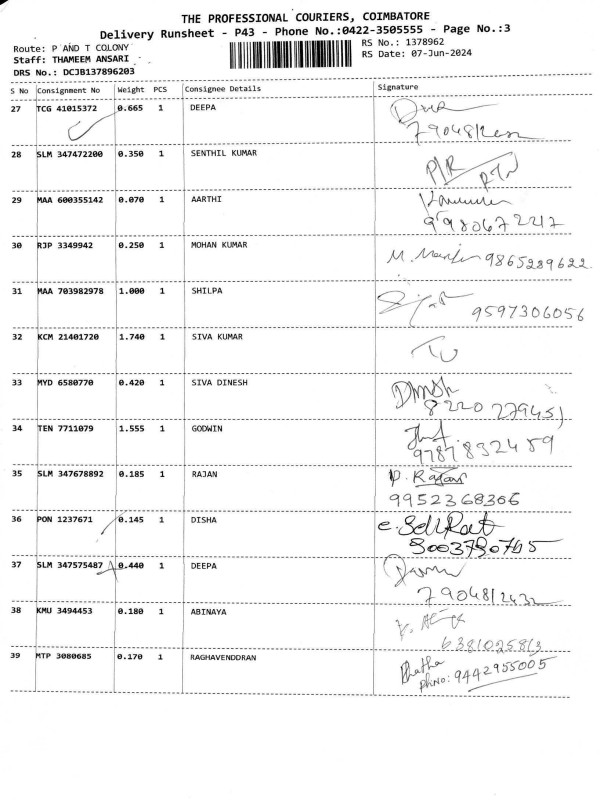 THE PROFESSIONAL COURIERS, COIMBATORE
Delivery Runsheet - P43 - Phone No.:0422-3505555 - Page No.:3
Route: P AND T COLONY
RS No.: 1378962
Staff: THAMEEM ANSARI
RS Date: 07-Jun-2024
DRS No.: DCJB137896203
S No Consignment No Weight PCS Consignee Details Signature
27 TCG 41015372 0.665 1 DEEPA
28 SLM 347472200 0.350 1 SENTHIL KUMAR
29 MAA 600355142 0.070 1 AARTHI
30 RJP 3349942 0.250 1 MOHAN KUMAR
9865289622
31 MAA 703982978 1.000 1 SHILPA
9597306056
32 KCM 21401720 1.740 1 SIVA KUMAR
33 MYD 6580770 0.420 1 SIVA DINESH
34 TEN 7711079 1.555 1 GODWIN
9787832459
35 SLM 347678892 0.185 1 RAJAN
P. Rajan
9952368306
36 PON 1237671 0.145 1 DISHA
37 SLM 347575487 0.440 1 DEEPA
38 KMU 3494453 0.180 1 ABINAYA
39 MTP 3080685 0.170 1 RAGHAVENDDRAN
PhNo: 9442955005